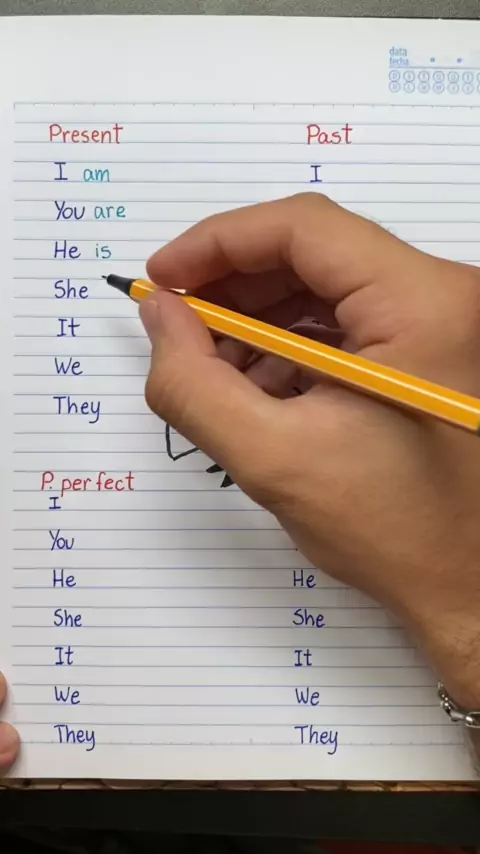 data
fecha
Present
I am
You are
He is
She
It
We
They
Past
I
P. perfect
I
You
He
She
It
We
They
He
She
It
We
They